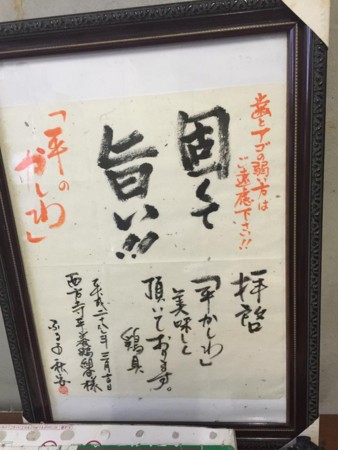 歯とアゴの弱い方は
ご遠慮下さい!!
固くて
旨い!!!
「平の
かしわ」
拝啓
「平かしわ」
美味しく
頂いております。
鶏具
平成二十八年三月吉日
西百寺平養鶏場様